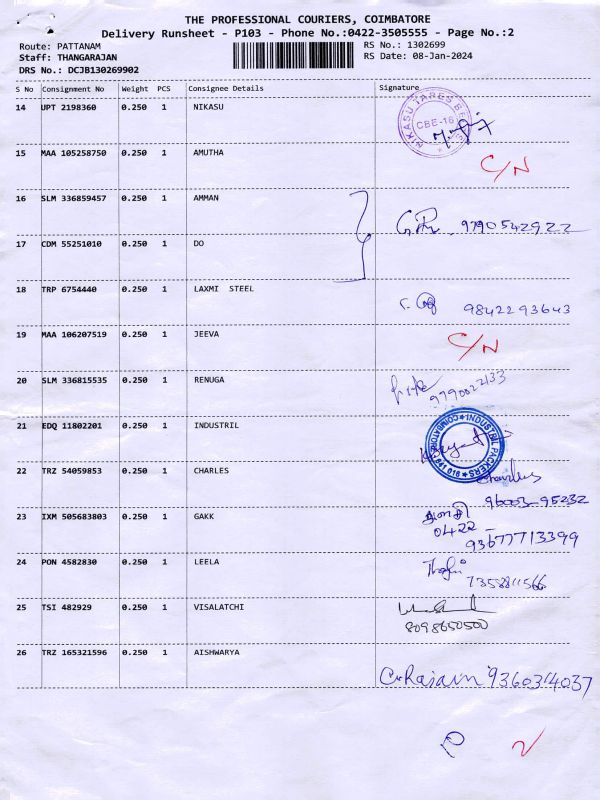 THE PROFESSIONAL COURIERS, COIMBATORE
Delivery Runsheet - P103 - Phone No.:0422-3505555 - Page No.:2
Route: PATTANAM RS No.: 1302699
Staff: THANGARAJAN RS Date: 08-Jan-2024
DRS No.: DCJB130269902
S No Consignment No Weight PCS Consignee Details Signature
14 UPT 2198360 0.250 1 NIKASU
CBE-16
15 MAA 105258750 0.250 1 AMUTHA C/N
16 SLM 336859457 0.250 1 AMMAN 9790542922
17 CDM 55251010 0.250 1 DO
18 TRP 6754440 0.250 1 LAXMI STEEL 9842293643
19 MAA 106207519 0.250 1 JEEVA C/N
20 SLM 336815535 0.250 1 RENUGA 9790022133
21 EDQ 11802201 0.250 1 INDUSTRIL
INDUSTRIL PACKERS COIMBATORE 641 016
22 TRZ 54059853 0.250 1 CHARLES Charles
96003-95232
23 IXM 505683803 0.250 1 GAKK
0422
93677713399
24 PON 4582830 0.250 1 LEELA
7358811566
25 TSI 482929 0.250 1 VISALATCHI
8098650500
26 TRZ 165321596 0.250 1 AISHWARYA 9360314037